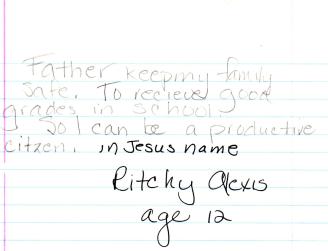 Father keeping my family
safe. To recieve good
grades in school.
So I can be a productive
citzen. in Jesus name
Ritchy Alexis
age 12